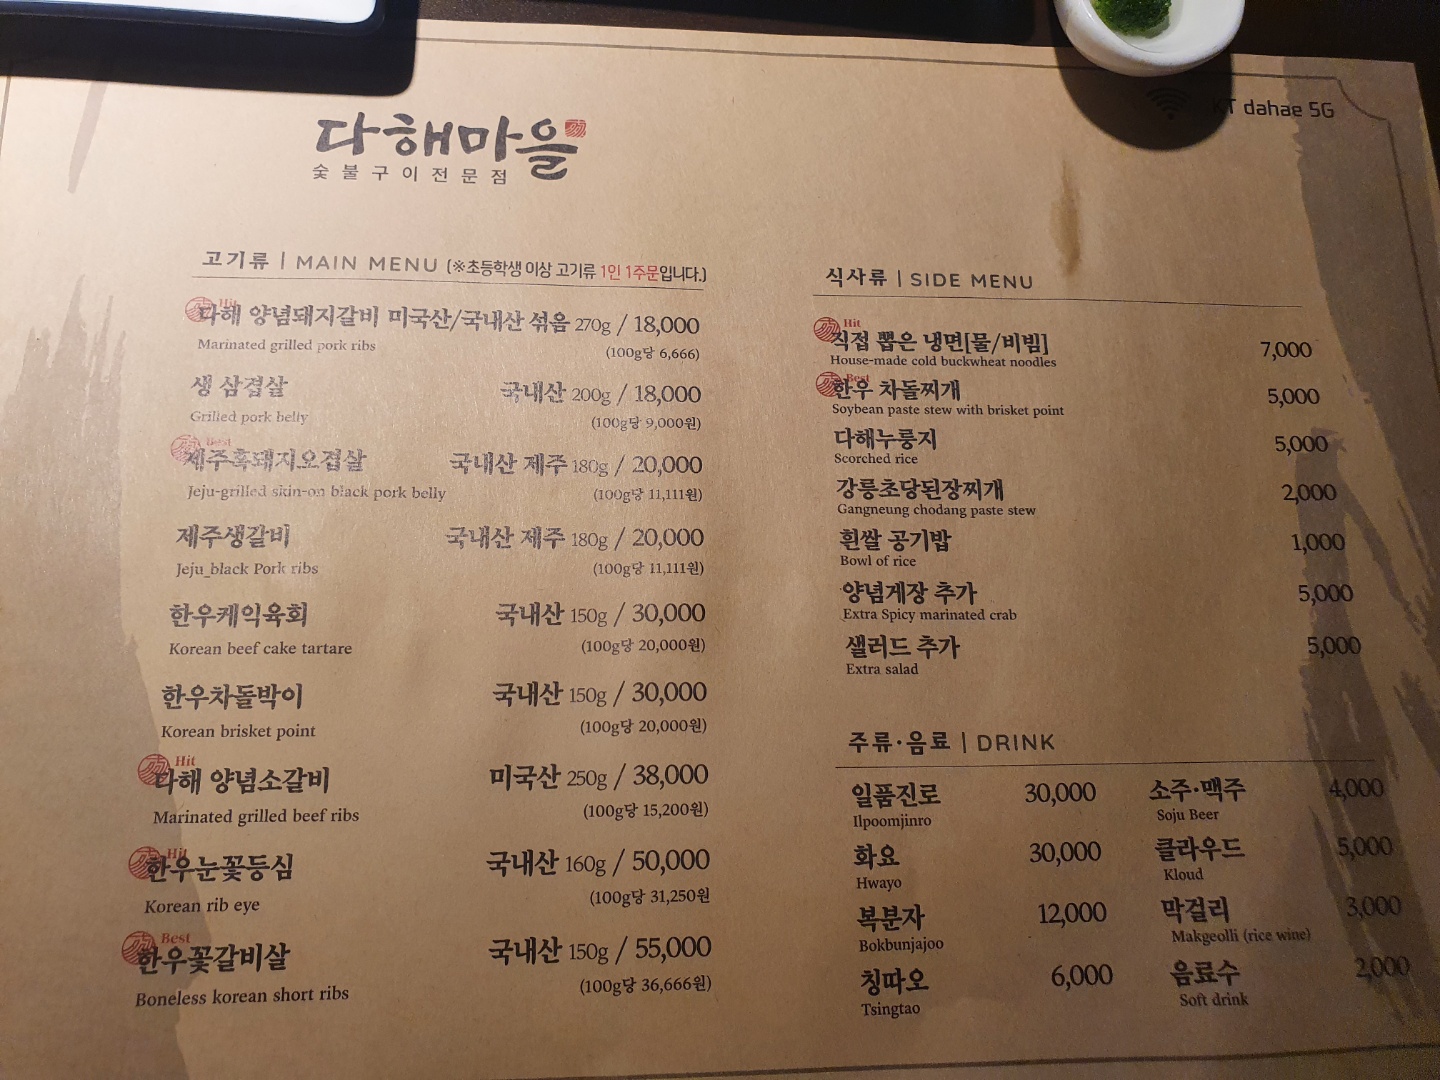 dahae 5G
다해마을
숯불구이전문점
고기류 | MAIN MENU (※초등학생 이상 고기류 1인 1주문입니다.)
Hit
다해 양념돼지갈비 미국산/국내산 섞음 270g / 18,000
Marinated grilled pork ribs (100g당 6,666)
생 삼겹살 국내산 200g / 18,000
Grilled pork belly (100g당 9,000원)
Best
제주흑돼지오겹살 국내산 제주 180g / 20,000
Jeju-grilled skin-on black pork belly (100g당 11,111원)
제주생갈비 국내산 제주 180g / 20,000
Jeju_black Pork ribs (100g당 11,111원)
한우케익육회 국내산 150g / 30,000
Korean beef cake tartare (100g당 20,000원)
한우차돌박이 국내산 150g / 30,000
Korean brisket point (100g당 20,000원)
Hit
다해 양념소갈비 미국산 250g / 38,000
Marinated grilled beef ribs (100g당 15,200원)
Hit
한우눈꽃등심 국내산 160g / 50,000
Korean rib eye (100g당 31,250원
Best
한우꽃갈비살 국내산 150g / 55,000
Boneless korean short ribs (100g당 36,666원)
식사류 | SIDE MENU
Hit
직접 뽑은 냉면[물/비빔] 7,000
House-made cold buckwheat noodles
Best
한우 차돌찌개 5,000
Soybean paste stew with brisket point
다해누룽지 5,000
Scorched rice
강릉초당된장찌개 2,000
Gangneung chodang paste stew
흰쌀 공기밥 1,000
Bowl of rice
양념게장 추가 5,000
Extra Spicy marinated crab
샐러드 추가 5,000
Extra salad
주류·음료 | DRINK
일품진로 30,000 소주·맥주 4,000
Ilpoomjinro Soju Beer
화요 30,000 클라우드 5,000
Hwayo Kloud
복분자 12,000 막걸리 3,000
Bokbunjajoo Makgeolli (rice wine)
칭따오 6,000 음료수 2,000
Tsingtao Soft drink